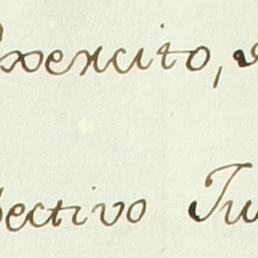 Exercito,
pectivo Ju